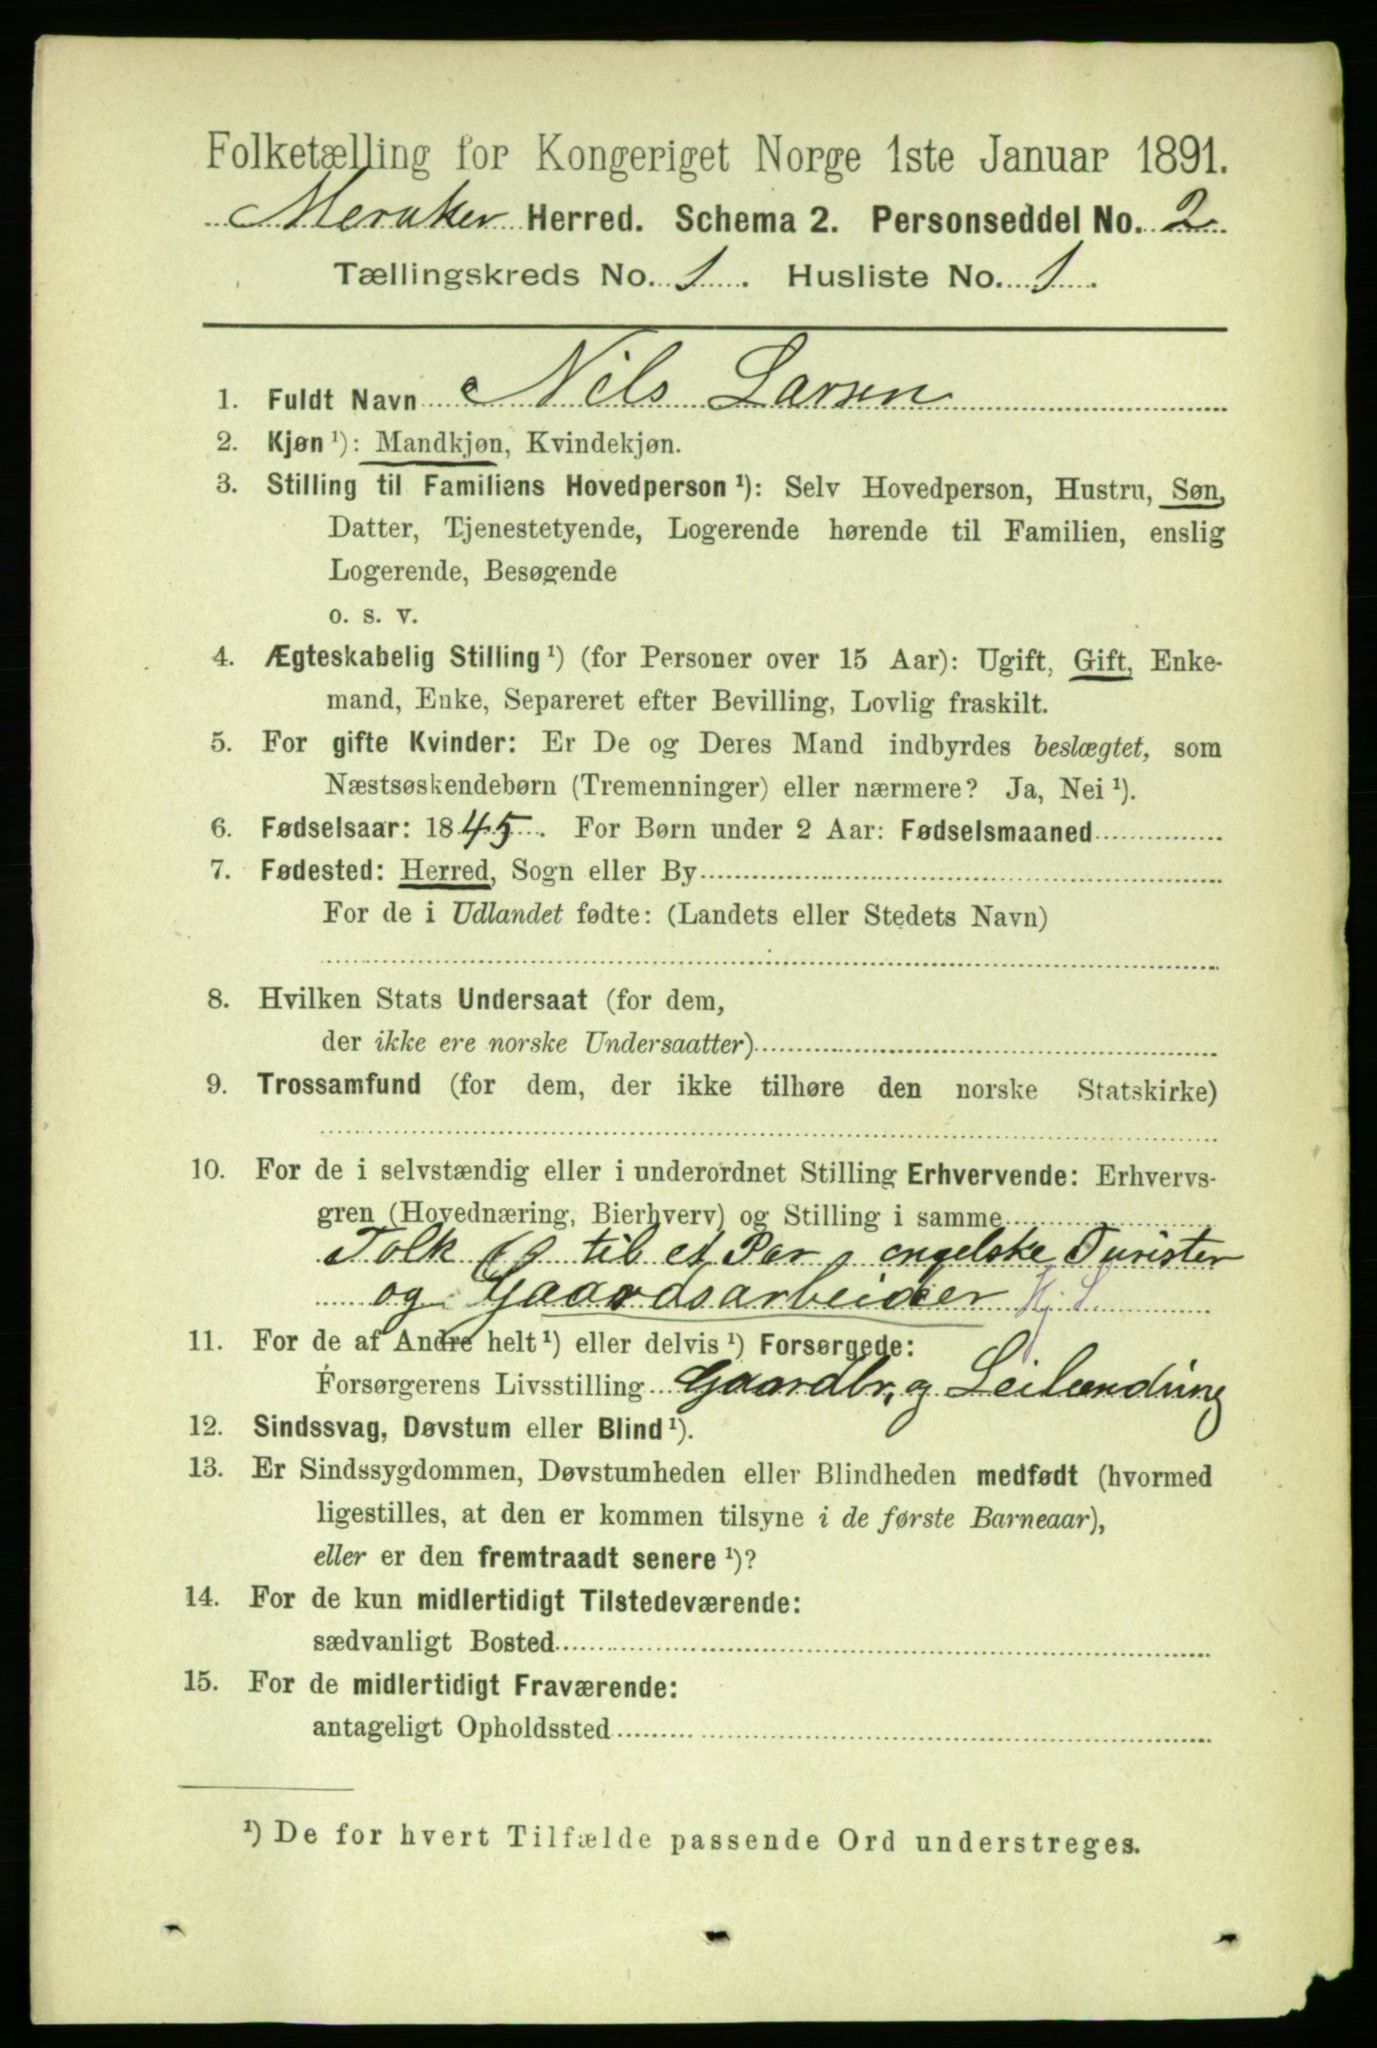 Folketælling for Kongeriget Norge 1ste Januar 1891.
Meraker Herred. Schema 2. Personseddel No. 2
Tællingskreds No. 1. Husliste No. 1.
1. Fuldt Navn Nils Larsen
2. Kjøn ¹): Mandkjøn, Kvindekjøn.
3. Stilling til Familiens Hovedperson ¹): Selv Hovedperson, Hustru, Søn,
Datter, Tjenestetyende, Logerende hørende til Familien, enslig
Logerende, Besøgende
o. s. v.
4. Ægteskabelig Stilling ¹) (for Personer over 15 Aar): Ugift, Gift, Enke-
mand, Enke, Separeret efter Bevilling, Lovlig fraskilt.
5. For gifte Kvinder: Er De og Deres Mand indbyrdes beslægtet, som
Næstsøskendebørn (Tremenninger) eller nærmere? Ja, Nei ¹).
6. Fødselsaar: 1845. For Børn under 2 Aar: Fødselsmaaned
7. Fødested: Herred, Sogn eller By
For de i Udlandet fødte: (Landets eller Stedets Navn)
8. Hvilken Stats Undersaat (for dem,
der ikke ere norske Undersaatter)
9. Trossamfund (for dem, der ikke tilhøre den norske Statskirke)
10. For de i selvstændig eller i underordnet Stilling Erhvervende: Erhvervs-
gren (Hovednæring, Bierhverv) og Stilling i samme
Tolk til et Par engelske Turister
og Gaardsarbeider
11. For de af Andre helt ¹) eller delvis ¹) Forsørgede:
Forsørgerens Livsstilling Gaardbr. og Leilending
12. Sindssvag, Døvstum eller Blind ¹).
13. Er Sindssygdommen, Døvstumheden eller Blindheden medfødt (hvormed
ligestilles, at den er kommen tilsyne i de første Barneaar),
eller er den fremtraadt senere ¹)?
14. For de kun midlertidigt Tilstedeværende:
sædvanligt Bosted
15. For de midlertidigt Fraværende:
antageligt Opholdssted
¹) De for hvert Tilfælde passende Ord understreges.